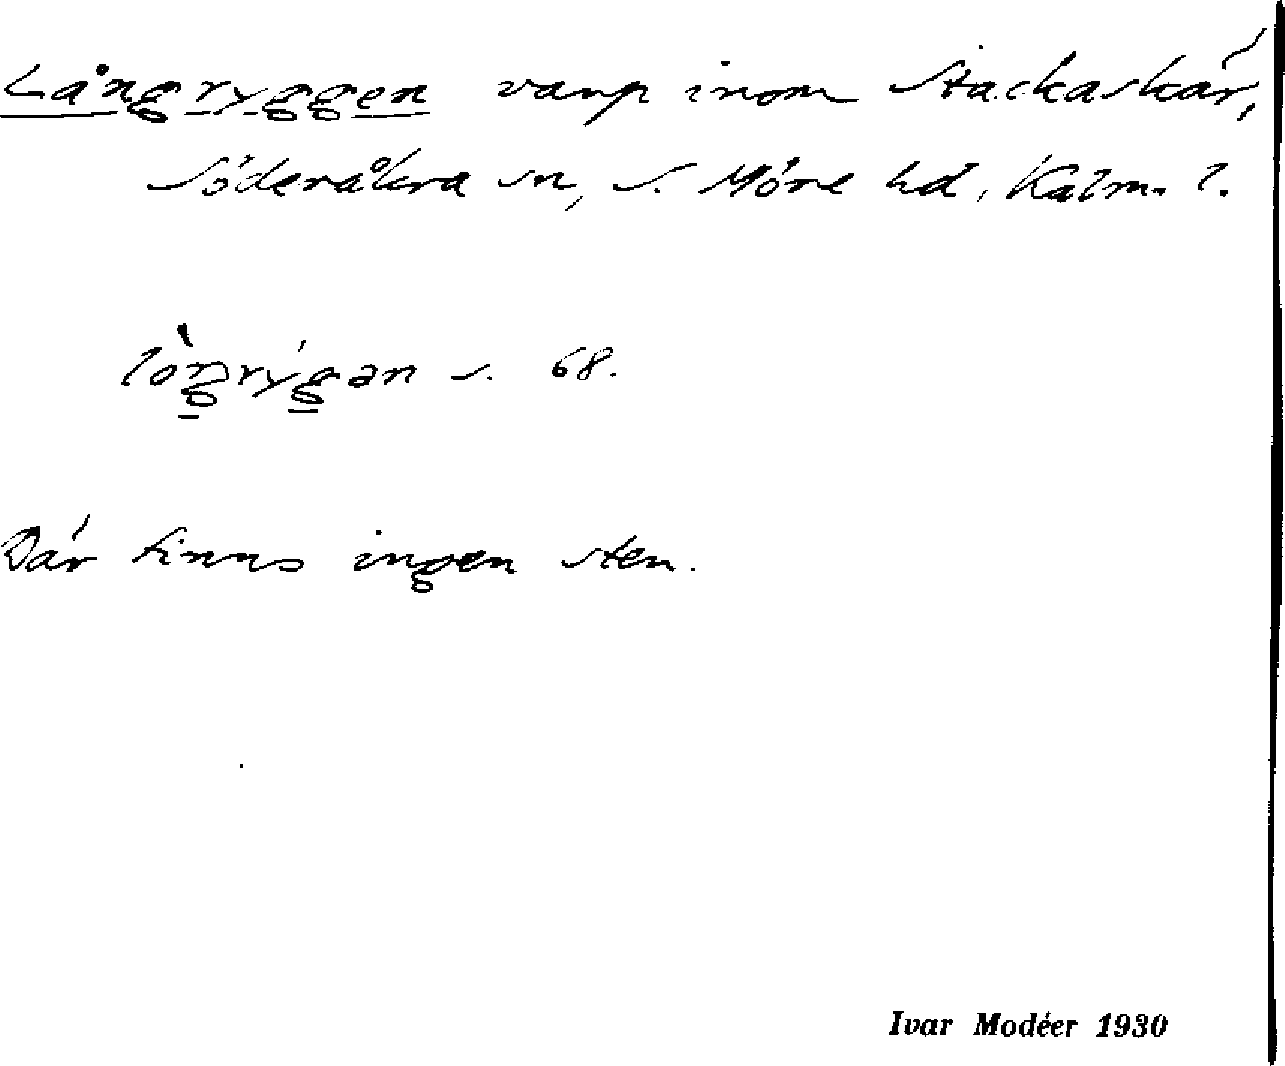 Långryggen varp inom Stackaskär,
Söderåkra sn, S. Möre hd, Kalm. l.
s. 68.
Där finns ingen sten.
Ivar Modéer 1930